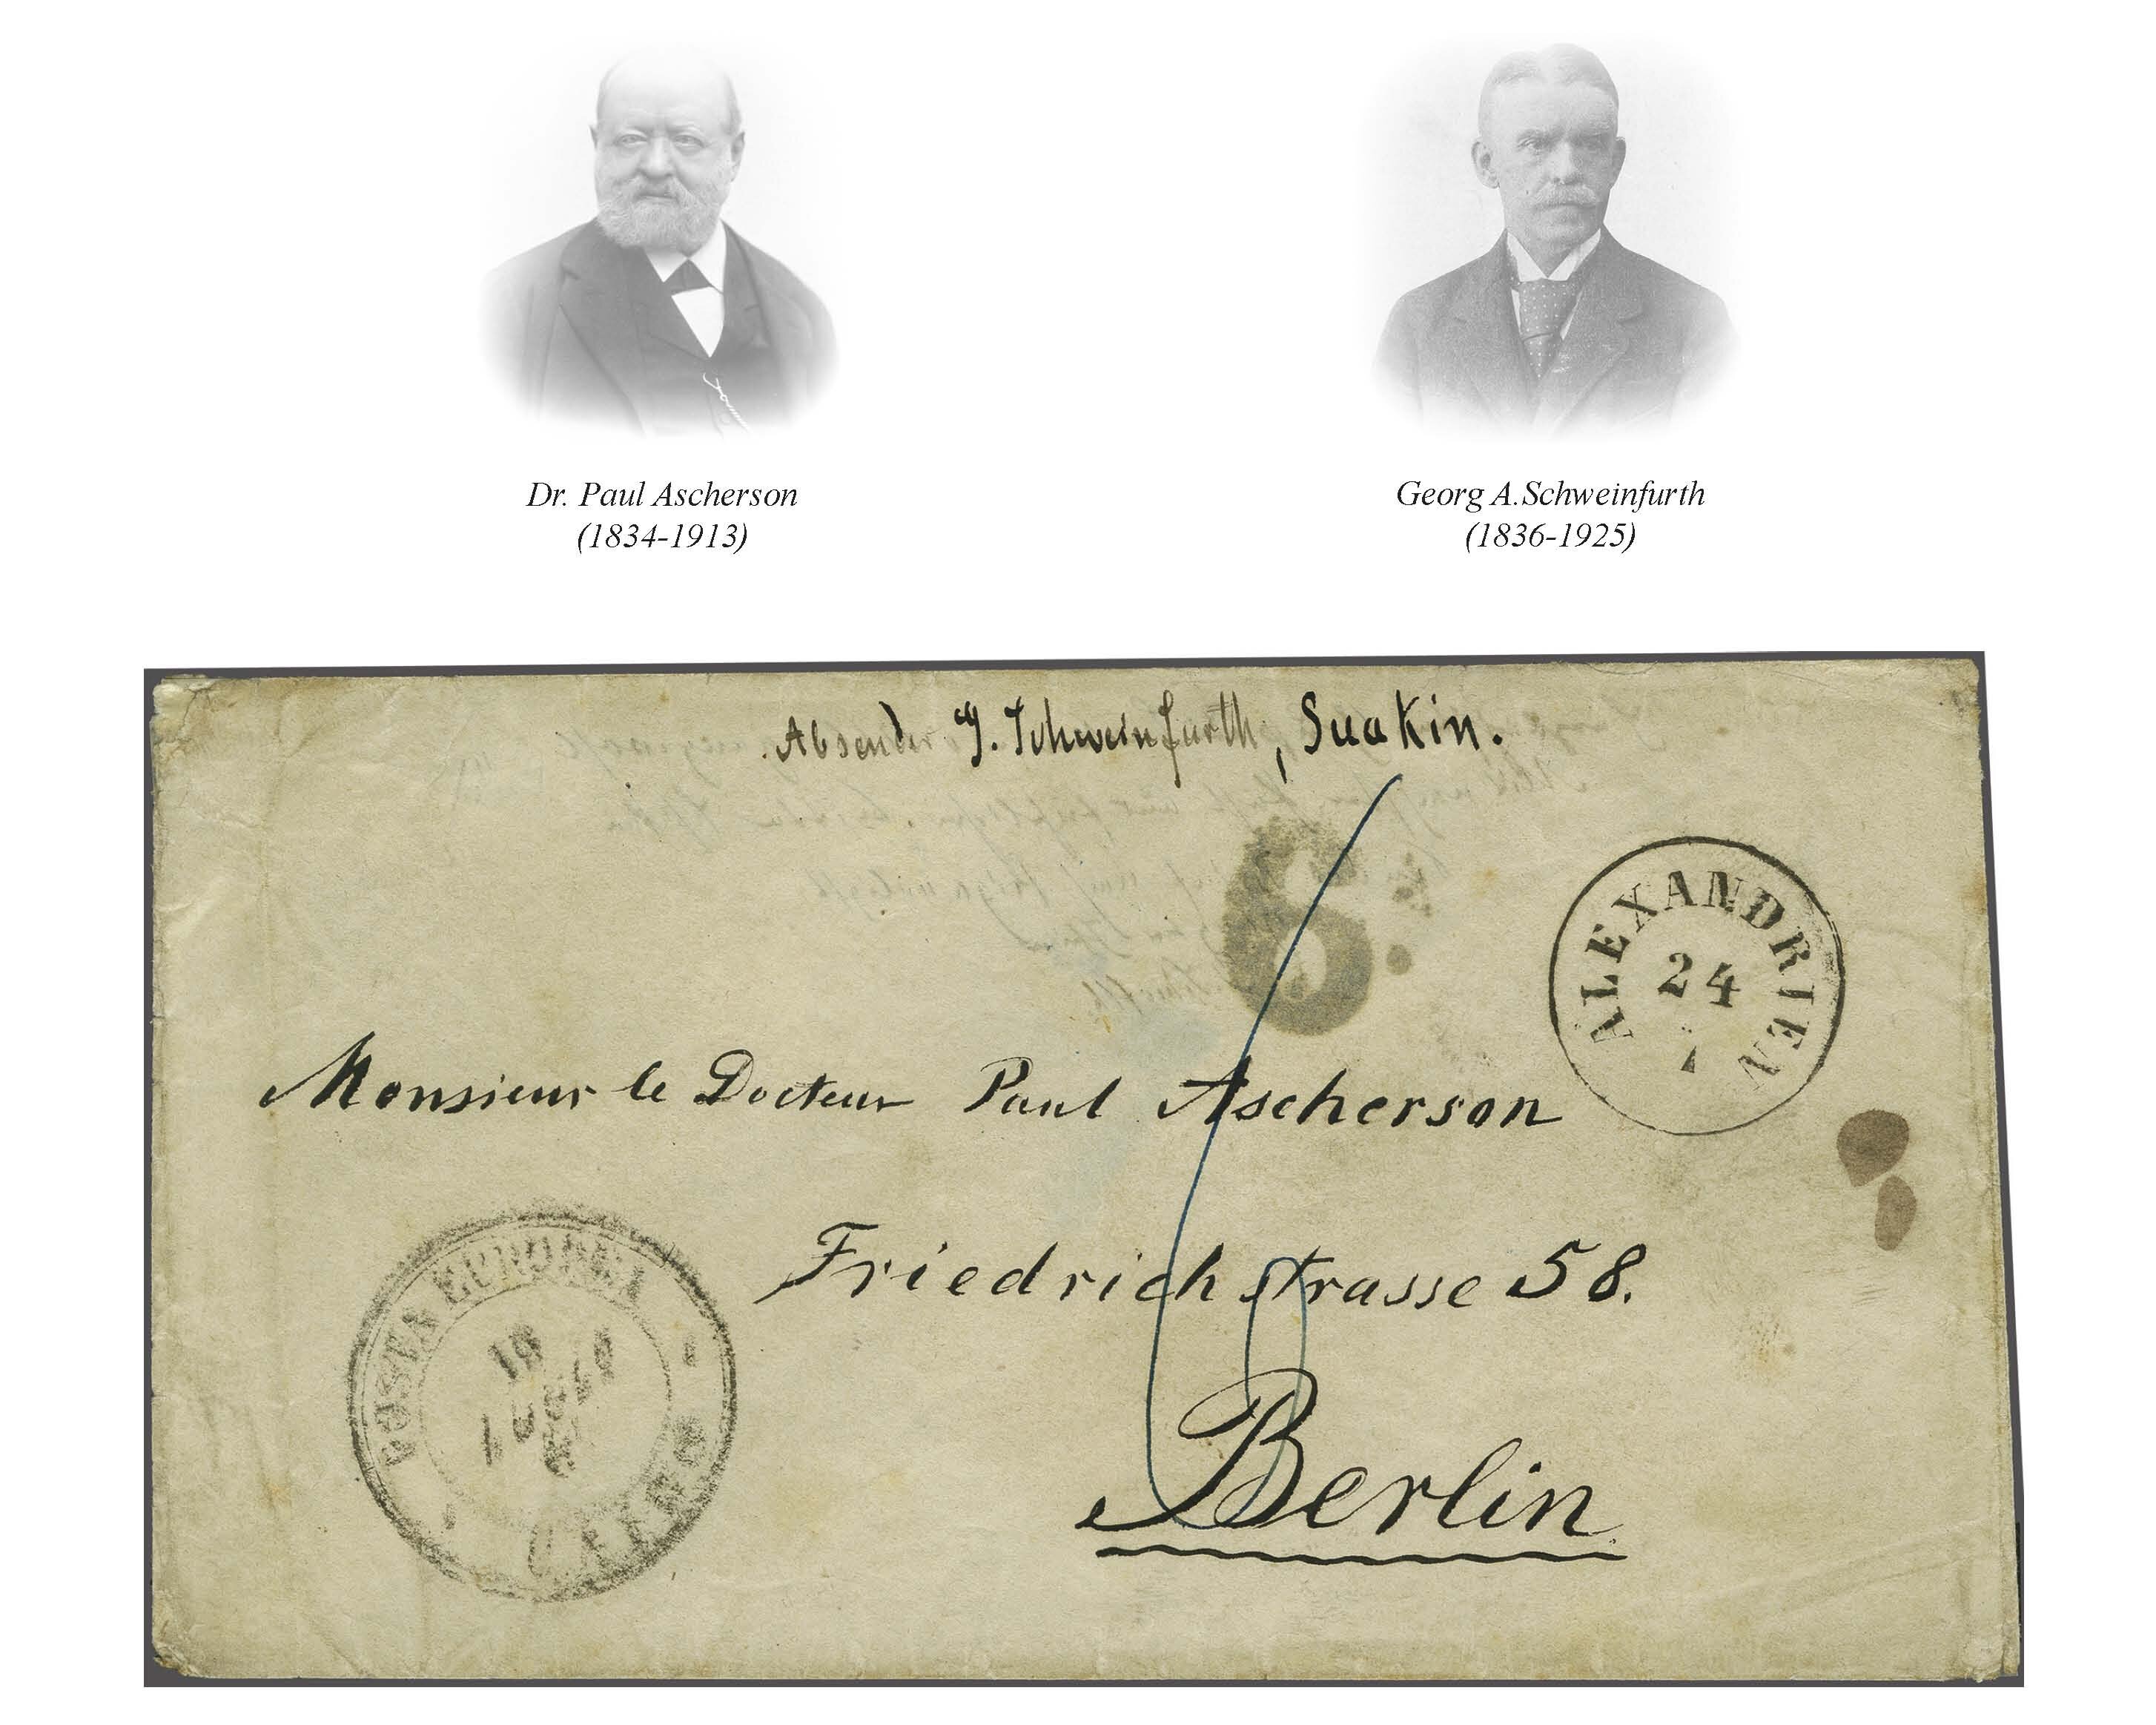 Dr. Paul Ascherson
(1834-1913)
Georg A.Schweinfurth
(1836-1925)
Absender G. Schweinfurth, Suakin.
6.
ALEXANDRIEN
24
7
Monsieur le Docteur Paul Ascherson
POSTA EUROPEA
19
CAIRO
Friedrichstrasse 58.
Berlin